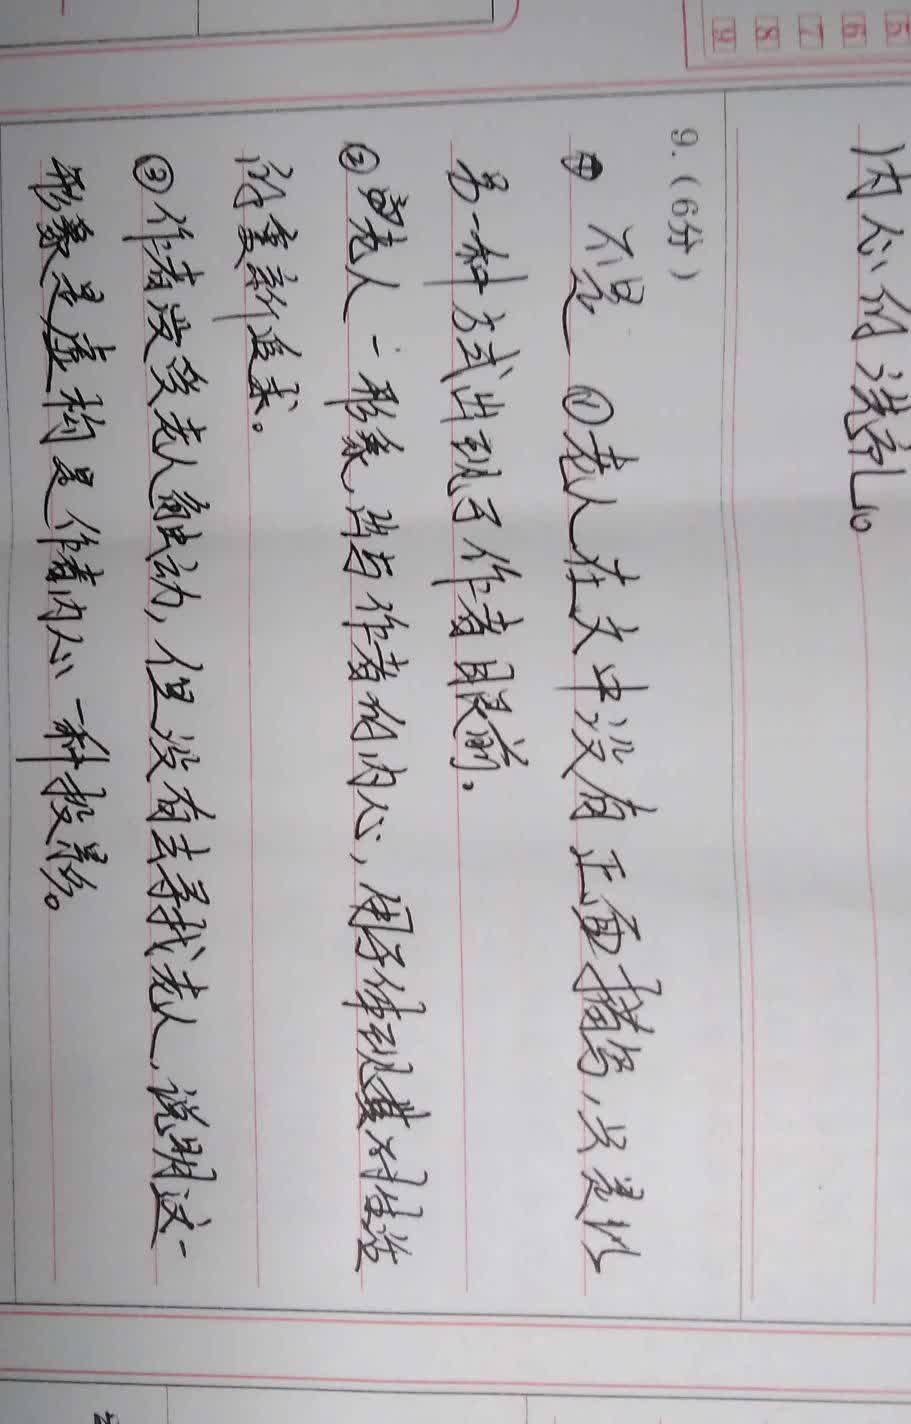 5
6
7
8
9
内心的洗礼。
9.(6分)
不是 ①老人在文中没有正面描写,只是以
另一种方式出现了作者眼前。
②老人一形象,当与作者的内心,用于体现其对生活
的重新追求。
③作者没受老人触动,但没有去寻找老人,说明这一
形象是虚构是作者内心一种投影。